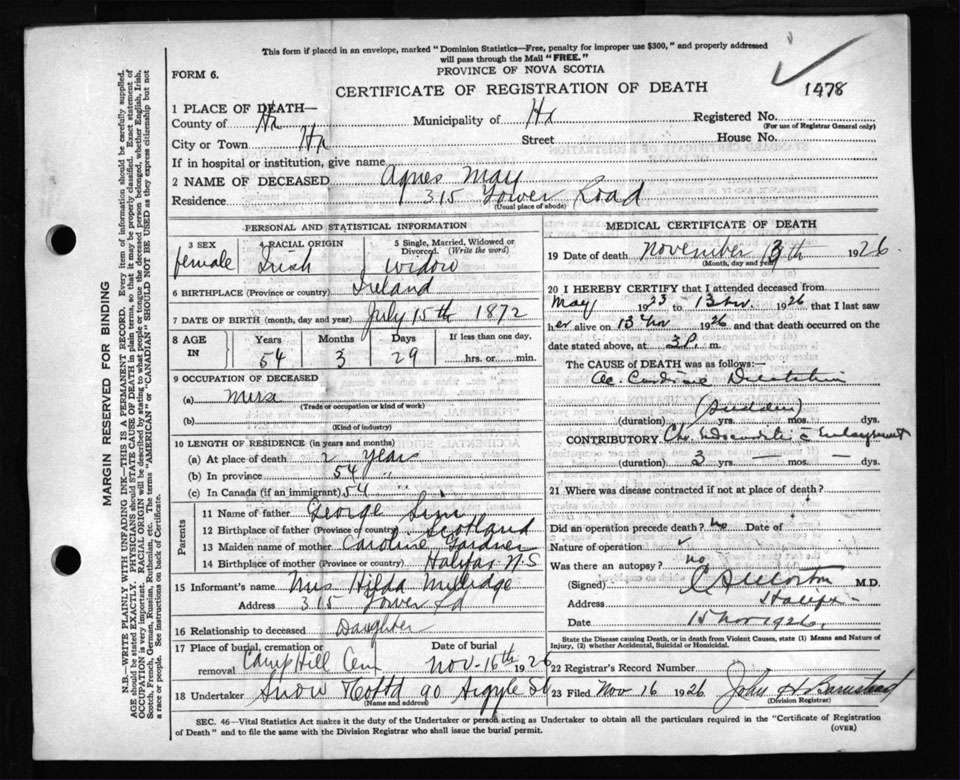 This form if placed in an envelope, marked "Dominion Statistics—Free, penalty for improper use $300," and properly addressed
will pass through the Mail "FREE."
FORM 6.
PROVINCE OF NOVA SCOTIA
CERTIFICATE OF REGISTRATION OF DEATH
1478
1 PLACE OF DEATH—
County of Hx Municipality of Hx Registered No.
(For use of Registrar General only)
City or Town Hx Street House No.
If in hospital or institution, give name
2 NAME OF DECEASED Agnes May
Residence 315 Tower Road
(Usual place of abode)
PERSONAL AND STATISTICAL INFORMATION
3 SEX 4 RACIAL ORIGIN 5 Single, Married, Widowed or Divorced. (Write the word)
female Irish widow
6 BIRTHPLACE (Province or country) Ireland
7 DATE OF BIRTH (month, day and year) July 15th 1872
8 AGE IN Years Months Days If less than one day,
54 3 29 hrs. or min.
9 OCCUPATION OF DECEASED
(a)
(Trade or occupation or kind of work)
(b)
(Kind of industry)
10 LENGTH OF RESIDENCE (in years and months)
(a) At place of death 2 years
(b) In province 54 "
(c) In Canada (if an immigrant) 54 "
Parents
11 Name of father George Sim
12 Birthplace of father (Province or country) Scotland
13 Maiden name of mother Caroline Gardner
14 Birthplace of mother (Province or country) Halifax N.S
15 Informant's name Mrs Hilda Millidge
Address 315 Tower Rd
16 Relationship to deceased Daughter
17 Place of burial, cremation or removal Camp Hill Cem Date of burial Nov-16th 1926
18 Undertaker Snow 90 Argyle St
(Name and address)
MEDICAL CERTIFICATE OF DEATH
19 Date of death November 13th 1926
(Month, day and year)
20 I HEREBY CERTIFY that I attended deceased from
May 1923 to 13 Nov 1926 that I last saw
her alive on 13 Nov 1926 and that death occurred on the
date stated above, at 3 P. m.
The CAUSE OF DEATH was as follows:—
Ac. Cardiac Dilatation
(Sudden)
(duration) yrs. mos. dys.
CONTRIBUTORY Chr Endocarditis Enlargement
(duration) 3 yrs. — mos. — dys.
21 Where was disease contracted if not at place of death?
Did an operation precede death? no Date of
Nature of operation
Was there an autopsy? no
(Signed) M.D.
Address Halifax
Date 15 Nov 1926
State the Disease causing Death, or in death from Violent Causes, state (1) Means and Nature of
Injury, (2) whether Accidental, Suicidal or Homicidal.
22 Registrar's Record Number
23 Filed Nov 16 1926 John H Barnstead
(Division Registrar)
SEC. 46—Vital Statistics Act makes it the duty of the Undertaker or person acting as Undertaker to obtain all the particulars required in the "Certificate of Registration
of Death" and to file the same with the Division Registrar who shall issue the burial permit.
(OVER)
MARGIN RESERVED FOR BINDING
N.B.—WRITE PLAINLY WITH UNFADING INK—THIS IS A PERMANENT RECORD. Every item of information should be carefully supplied.
AGE should be stated EXACTLY. PHYSICIANS should STATE CAUSE OF DEATH in plain terms, so that it may be properly classified. Exact statement of
OCCUPATION is very important. RACIAL ORIGIN will be described by stating to what people or tongue the deceased person belonged, whether English, Irish,
Scotch, French, German, Russian, Ruthenian, etc. The terms "AMERICAN" or "CANADIAN" SHOULD NOT BE USED as they express citizenship but not
a race or people. See instructions on back of Certificate.